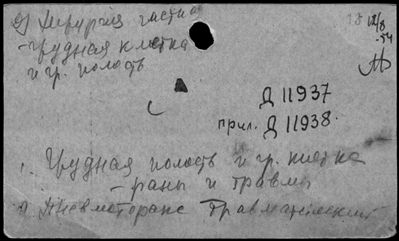 а) Хирургия частная
- грудная клетка
и гр. полость
18 12/8
54
Д 11937
прил. Д 11938.
1. Грудная полость и гр. клетка
- раны и травмы
2. Пневмоторакс травматический